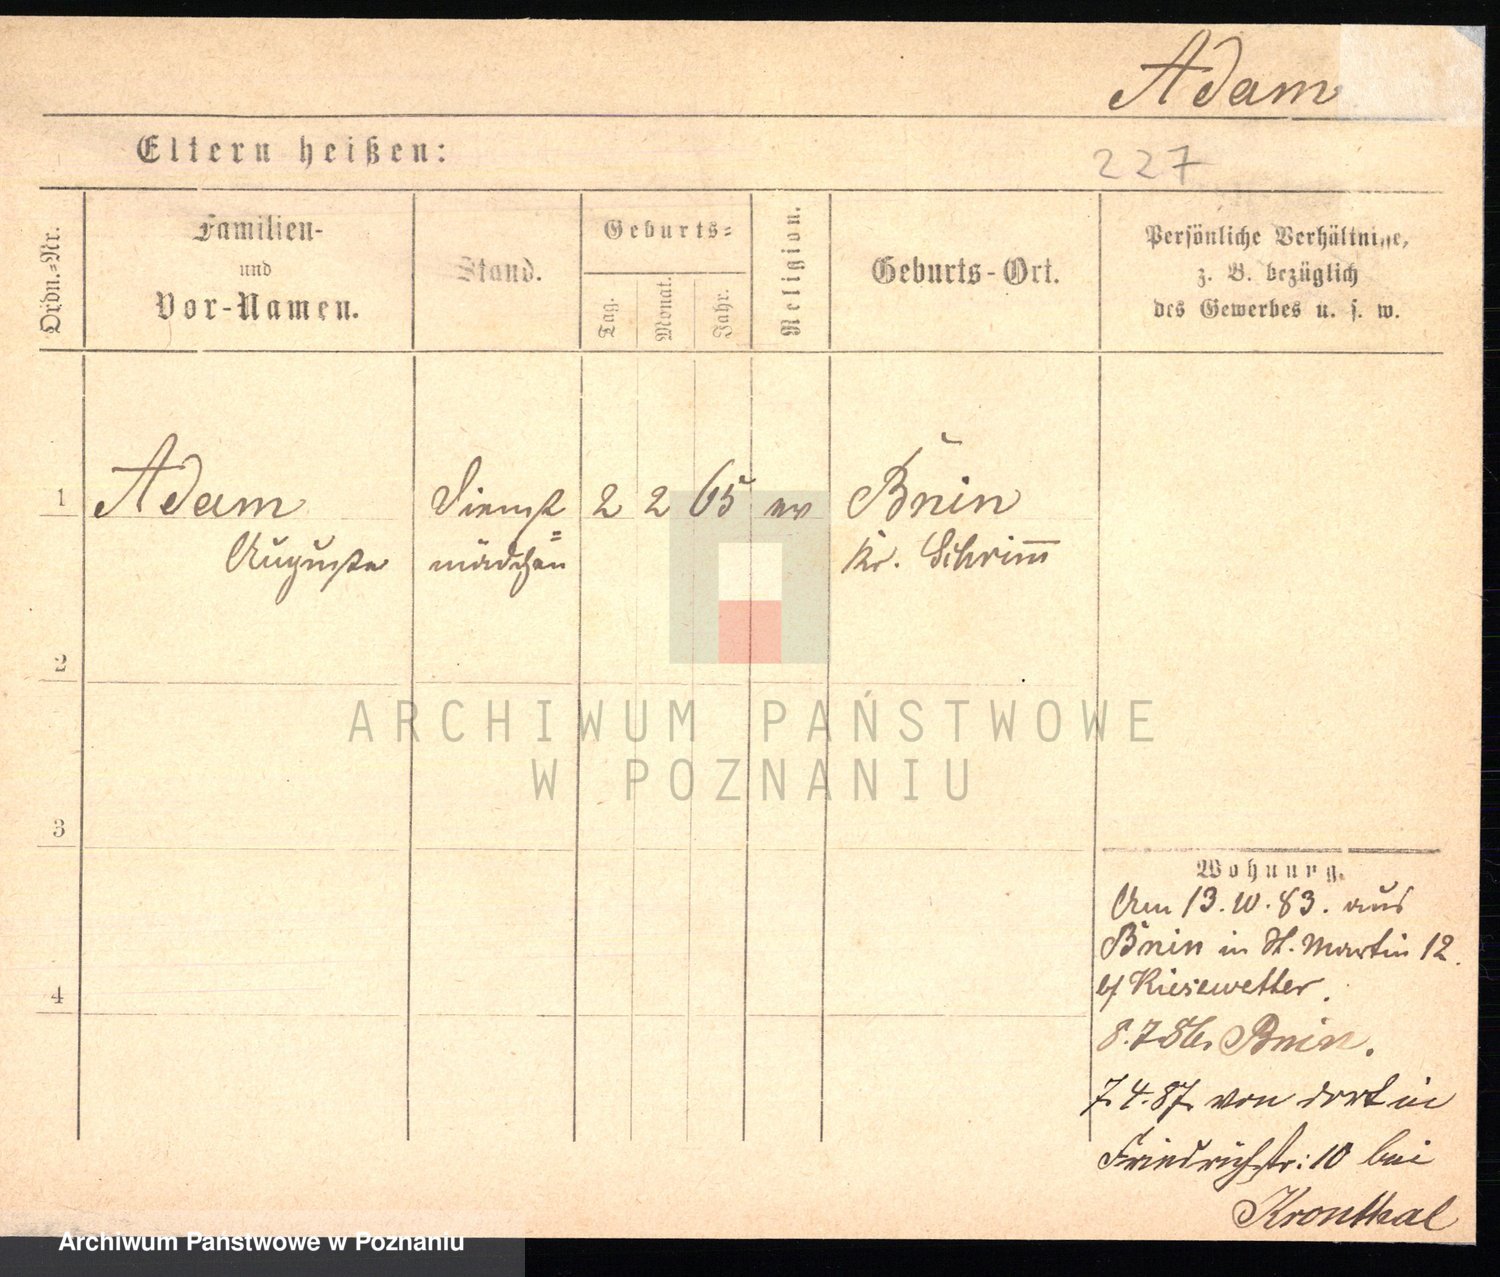 Adam
Eltern heißen:
227
Ordn.-Nr.
Familien-
und
Vor-Namen.
Stand.
Geburts-
Tag.
Monat.
Jahr.
Religion.
Geburts-Ort.
Persönliche Verhältnisse,
z. B. bezüglich
des Gewerbes u. s. w.
1 Adam Dienst 2 2 65 ev Bnin
Auguste mädchen Kr. Schrimm
2
ARCHIWUM PAŃSTWOWE
W POZNANIU
3
Wohnung.
Am 13.10.83. aus
Bnin in St. Martin 12.
b/ Kiesewetter.
4
8.7.86. Bnin.
7.4.87. von dort in
Friedrichstr: 10 bei
Kronthal
Archiwum Państwowe w Poznaniu